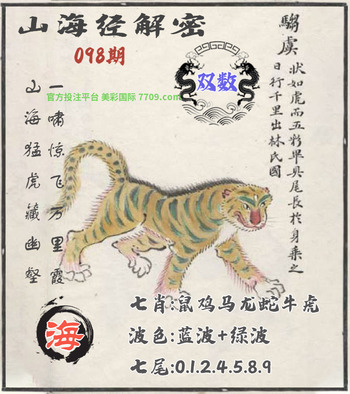 山海经解密
098期
官方投注平台 美彩国际 7709.com
双数
騶虞
狀如虎而五彩畢具尾長於身乘之
日行千里出林氏國
一啸惊飞万里霞
山海猛虎藏幽壑
海
七肖:鼠鸡马龙蛇牛虎
波色:蓝波+绿波
七尾:0.1.2.4.5.8.9